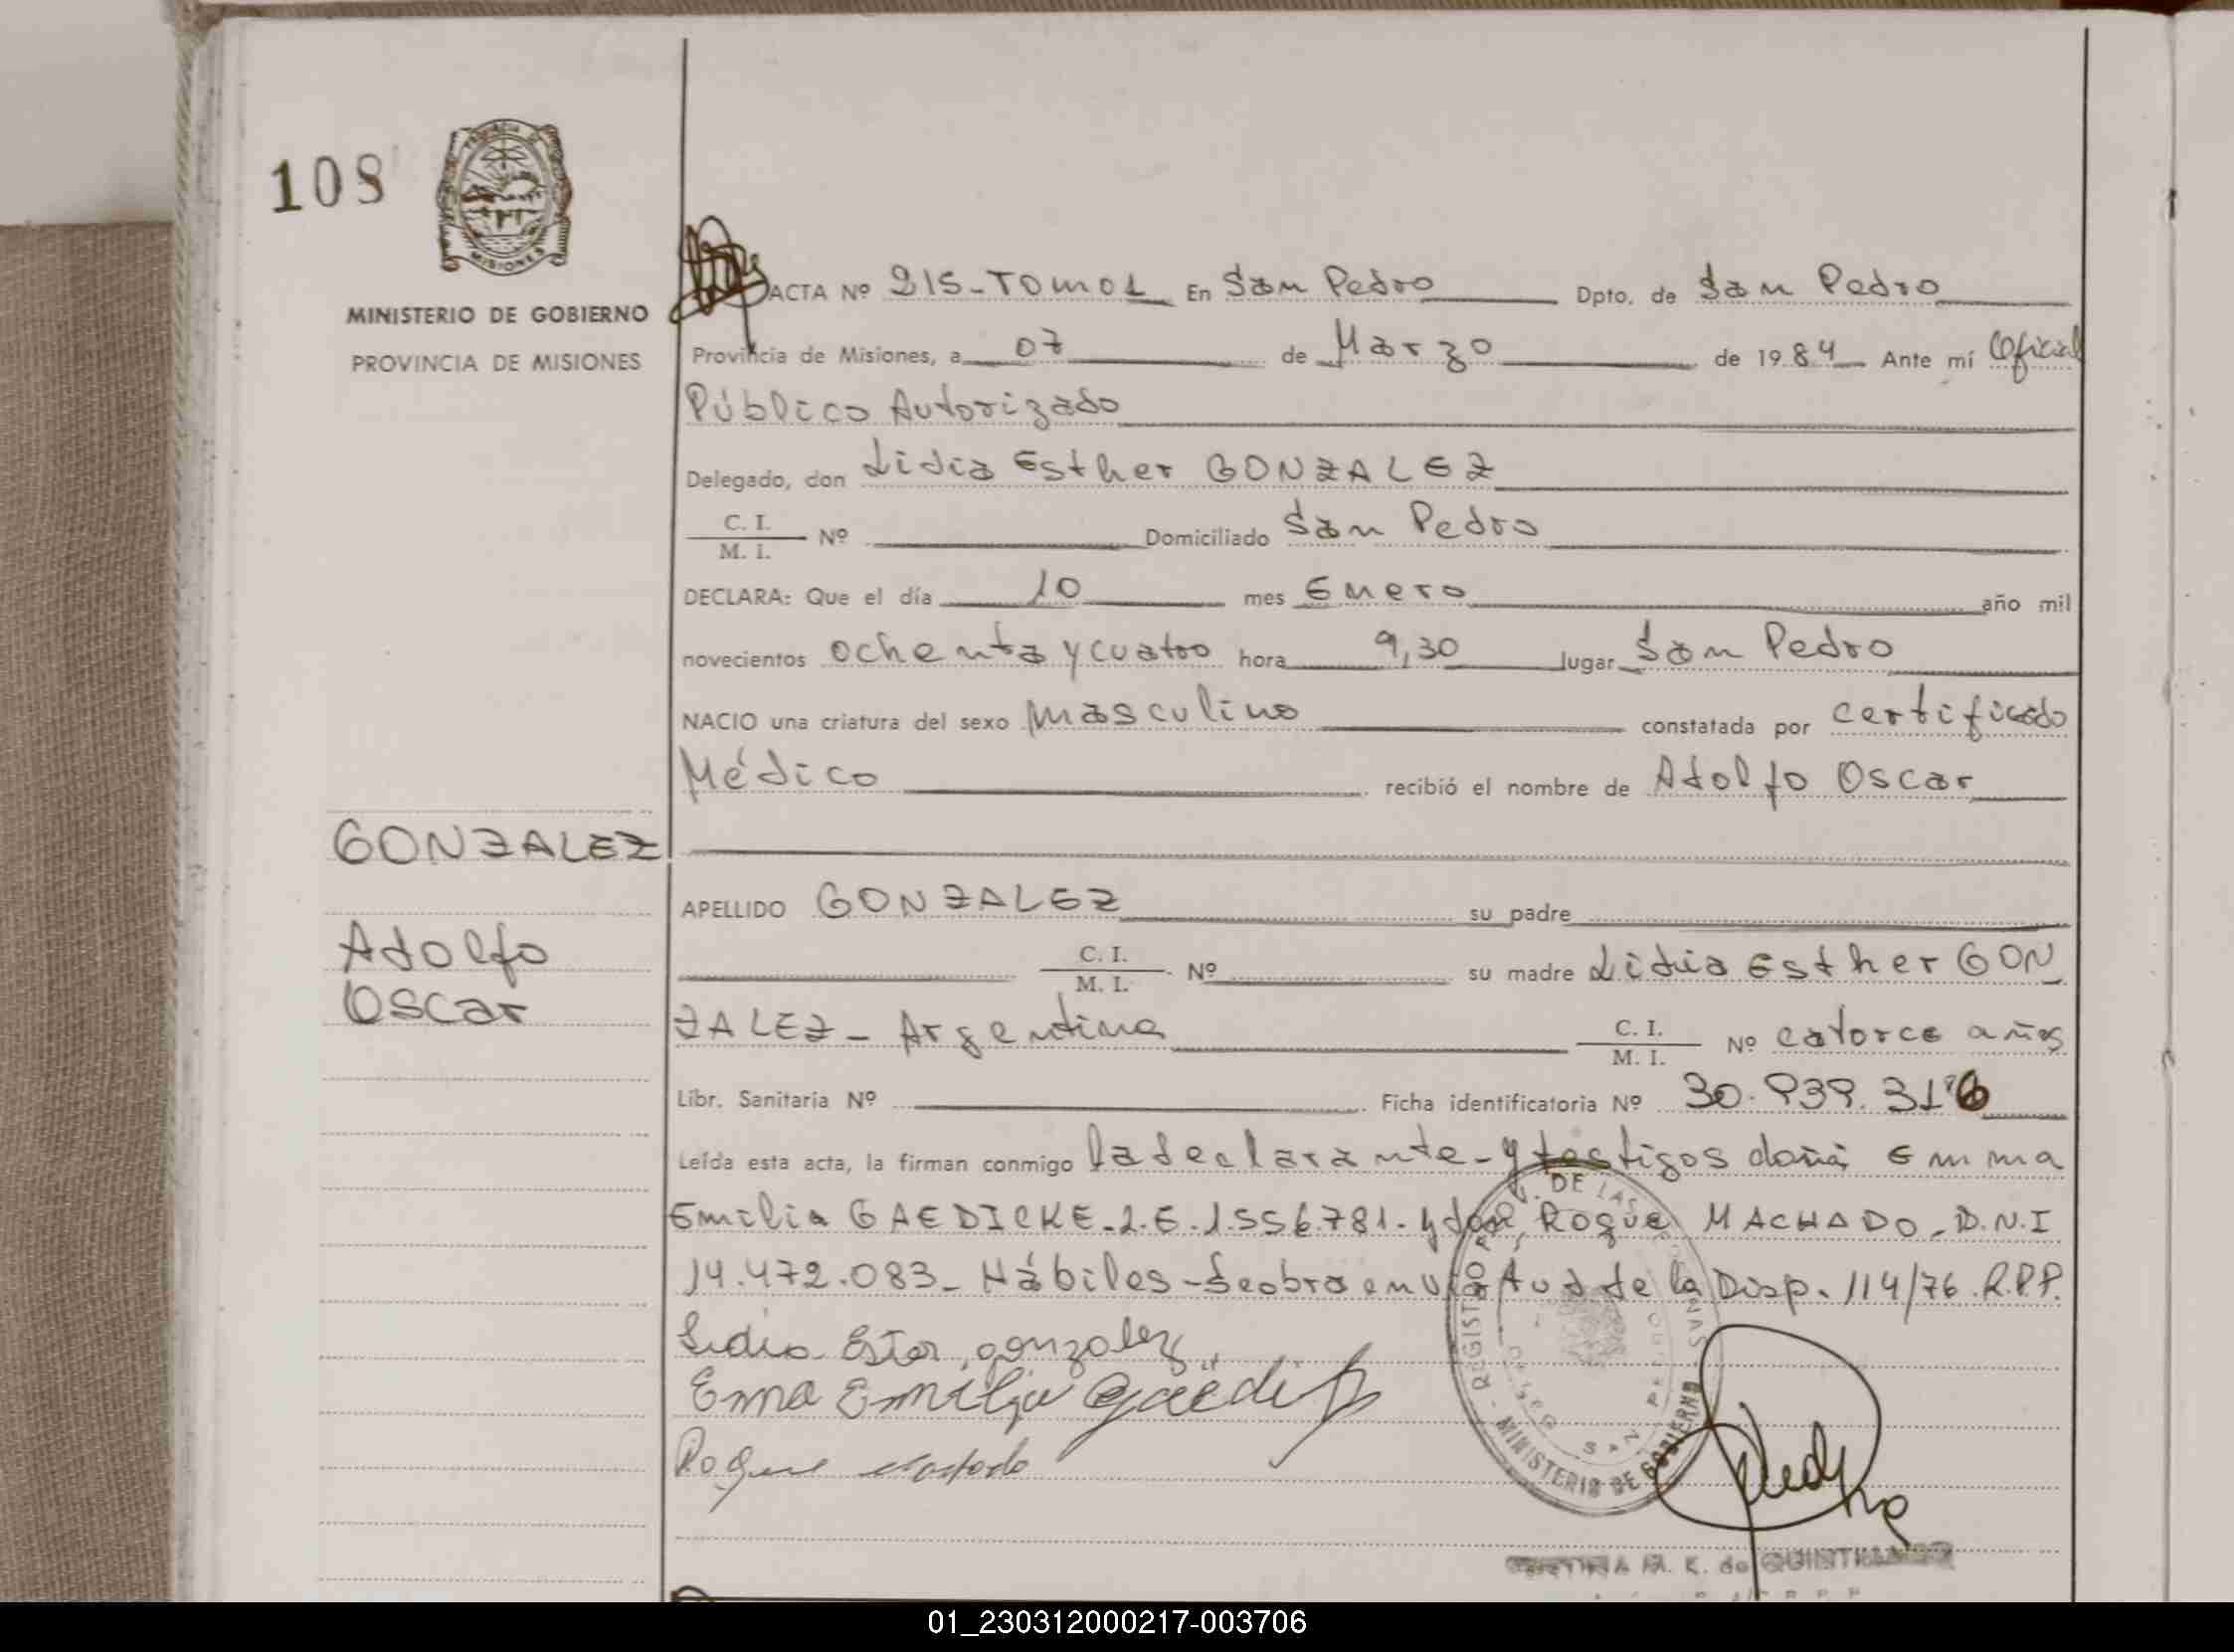 108
PROVINCIA DE
MISIONES
MINISTERIO DE GOBIERNO
PROVINCIA DE MISIONES
GONZALEZ
Adolfo
Oscar
ACTA Nº 215-TOMO1 En San Pedro Dpto. de San Pedro
Provincia de Misiones, a 07 de Marzo de 1984 Ante mí Oficial
Público Autorizado
Delegado, don Lidia Esther GONZALEZ
C. I.
M. I. Nº Domiciliado San Pedro
DECLARA: Que el día 10 mes Enero año mil
novecientos ochenta y cuatro hora 9,30 lugar San Pedro
NACIO una criatura del sexo masculino constatada por certificado
Médico recibió el nombre de Adolfo Oscar
APELLIDO GONZALEZ su padre
C. I.
M. I. Nº su madre Lidia Esther GON
ZALEZ - Argentina C. I.
M. I. Nº catorce años
Libr. Sanitaria Nº Ficha identificatoria Nº 30.939.316
Leída esta acta, la firman conmigo la declarante - y testigos doña Emma
Emilia GAEDICKE - L.E. 1.556.781 - y don Roque MACHADO - D.N.I
14.472.083 - Hábiles - Se obra en virtud de la Disp. 114/76. R.P.P.
Lidia Ester gonzalez
Ema Emilia
Roque
REGISTRO PROV. DE LAS PERSONAS
MINISTERIO DE GOBIERNO
SAN PEDRO
M. K. de
01_230312000217-003706